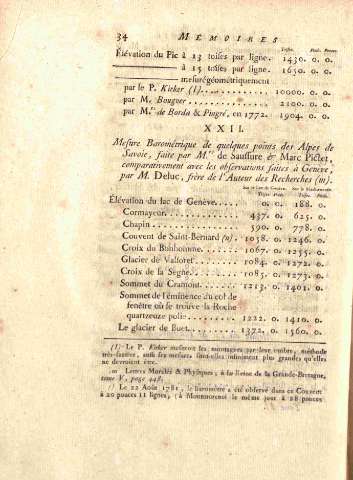 34 MEMOIRES
Toises. Pieds. Pouces.
Élévation du Pic à 13 toises par ligne. 1430. 0. 0.
à 15 toises par ligne. 1650. 0. 0.
mesuré géométriquement
par le P. Kieker (l) 10000. 0. 0.
par M. Bouguer 2100. 0. 0.
par M.rs de Borda & Pingré, en 1772. 1904. 0. 0.
XXII.
Mesure Barométrique de quelques points des Alpes de
Savoie, faite par M.rs de Saussure & Marc Pictet,
comparativement avec les observations faites à Genève,
par M. Deluc, frère de l'Auteur des Recherches (m).
Élévation du lac de Genève 0. 0. 188. 0.
Cormayeur 437. 0. 625. 0.
Chapin 590. 0. 778. 0.
Couvent de Saint-Bernard (n) 1058. 0. 1246. 0.
Croix du Bonhomme 1067. 0. 1255. 0.
Glacier de Valsoret 1084. 0. 1272. 0.
Croix de la Segne 1085. 0. 1273. 0.
Sommet du Cramont 1213. 0. 1401. 0.
Sommet de l'éminence du col de
fenêtre où se trouve la Roche
quartzeuze polie 1222. 0. 1410. 0.
Le glacier de Buet 1372. 0. 1560. 0.
(l) Le P. Kieker mesuroit les montagnes par leur ombre, méthode
très-fautive, aussi ses mesures sont-elles infiniment plus grandes qu'elles
ne devroient être.
m Lettres Morales & Physiques, à la Reine de la Grande-Bretagne,
tome V, page 448.
Le 22 Août 1781, le baromètre a été observé dans ce Couvent
à 20 pouces 11 lignes, (à Montmorenci le même jour à 28 pouces